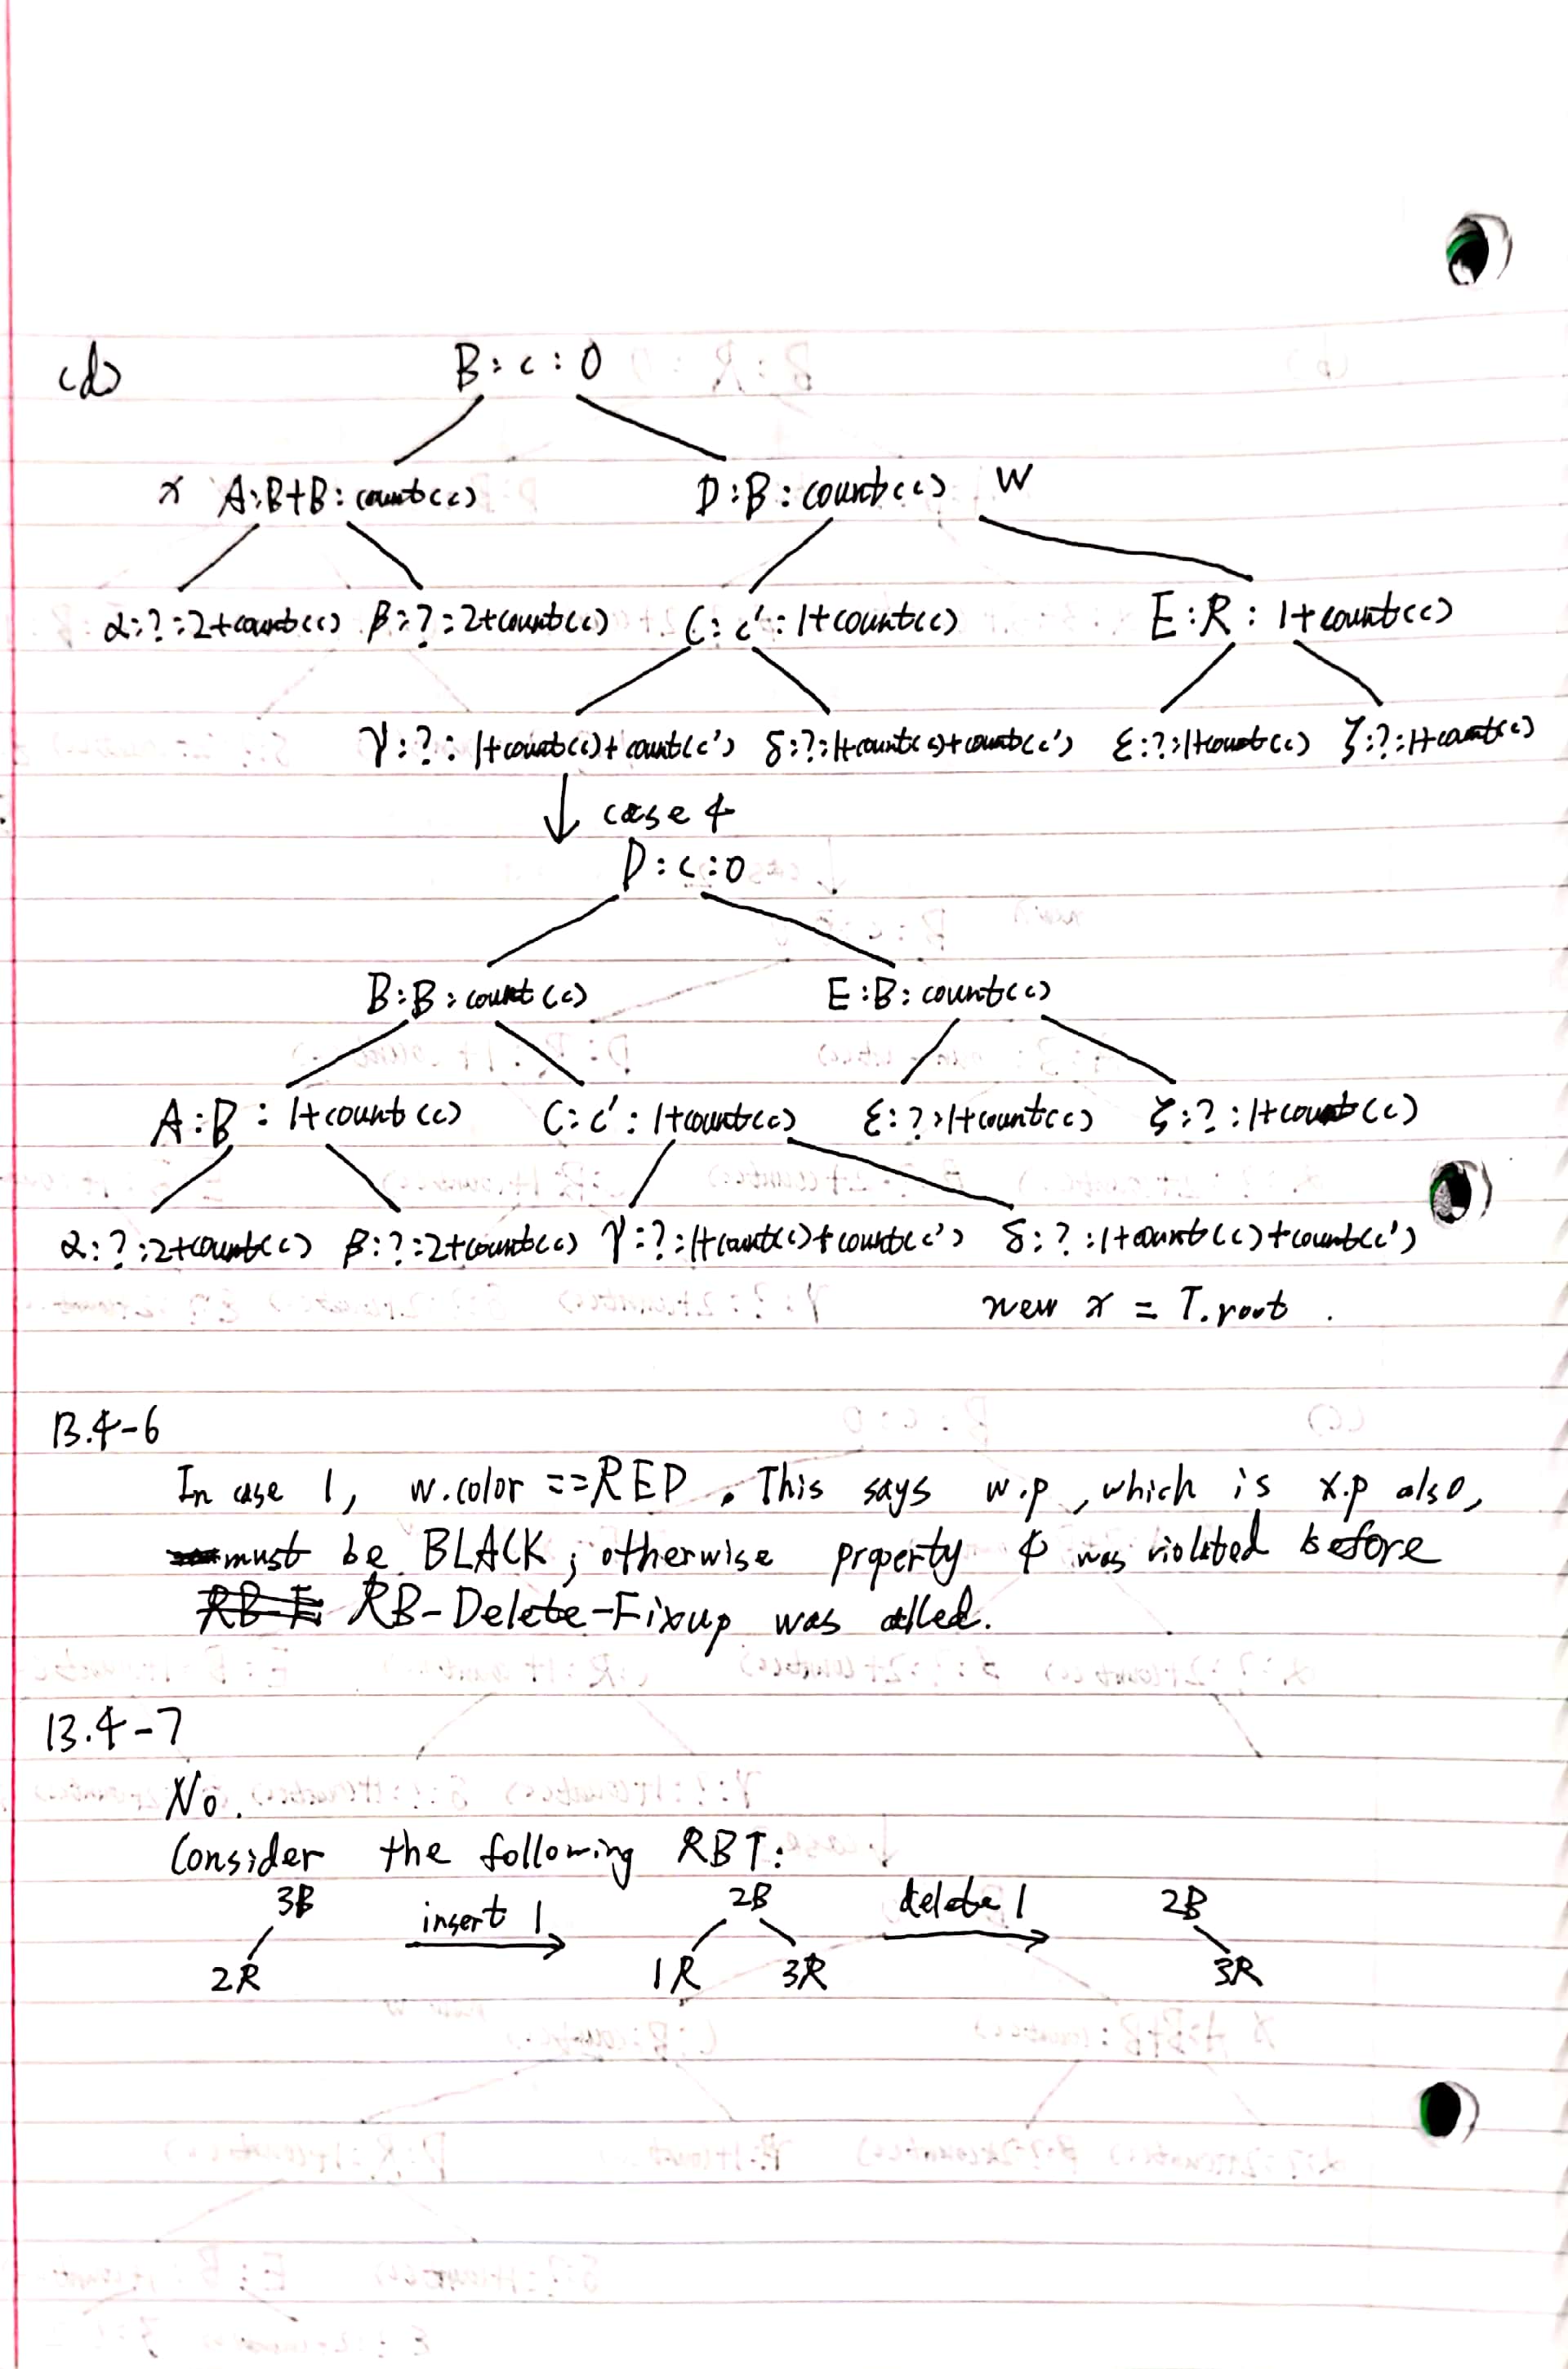 (d)
B:c:0
x A:B+B:count(c) D:B:count(c) w
α:?:2+count(c) β:?:2+count(c) C:c':1+count(c) E:R:1+count(c)
γ:?:1+count(c)+count(c') δ:?:1+count(c)+count(c') ε:?:1+count(c) ζ:?:1+count(c)
↓ case 4
D:c:0
B:B:count(c) E:B:count(c)
A:B:1+count(c) C:c':1+count(c) ε:?:1+count(c) ζ:?:1+count(c)
α:?:2+count(c) β:?:2+count(c) γ:?:1+count(c)+count(c') δ:?:1+count(c)+count(c')
new x = T.root.
13.4-6
In case 1, w.color == RED. This says w.p, which is x.p also,
must be BLACK; otherwise property 4 was violated before
RB-Delete-Fixup was called.
13.4-7
No.
Consider the following RBT:
3B insert 1 2B delete 1 2B
2R 1R 3R 3R